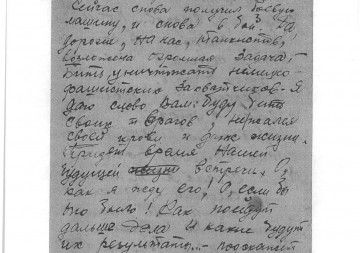 Сейчас снова получил боевую
машину, и снова в бой. На
дороги, на нас, танкистов,
возложена огромная задача,
бить, уничтожать немецко-
фашистских захватчиков. Я
даю слово Вам: буду бить
своих врагов, не жалея
своей крови и даже жизни.
Придет время нашей
будущей встречи. О,
как я жду его! О, если бы
это было! Как пойдут
дальше дела и какие будут
их результаты -